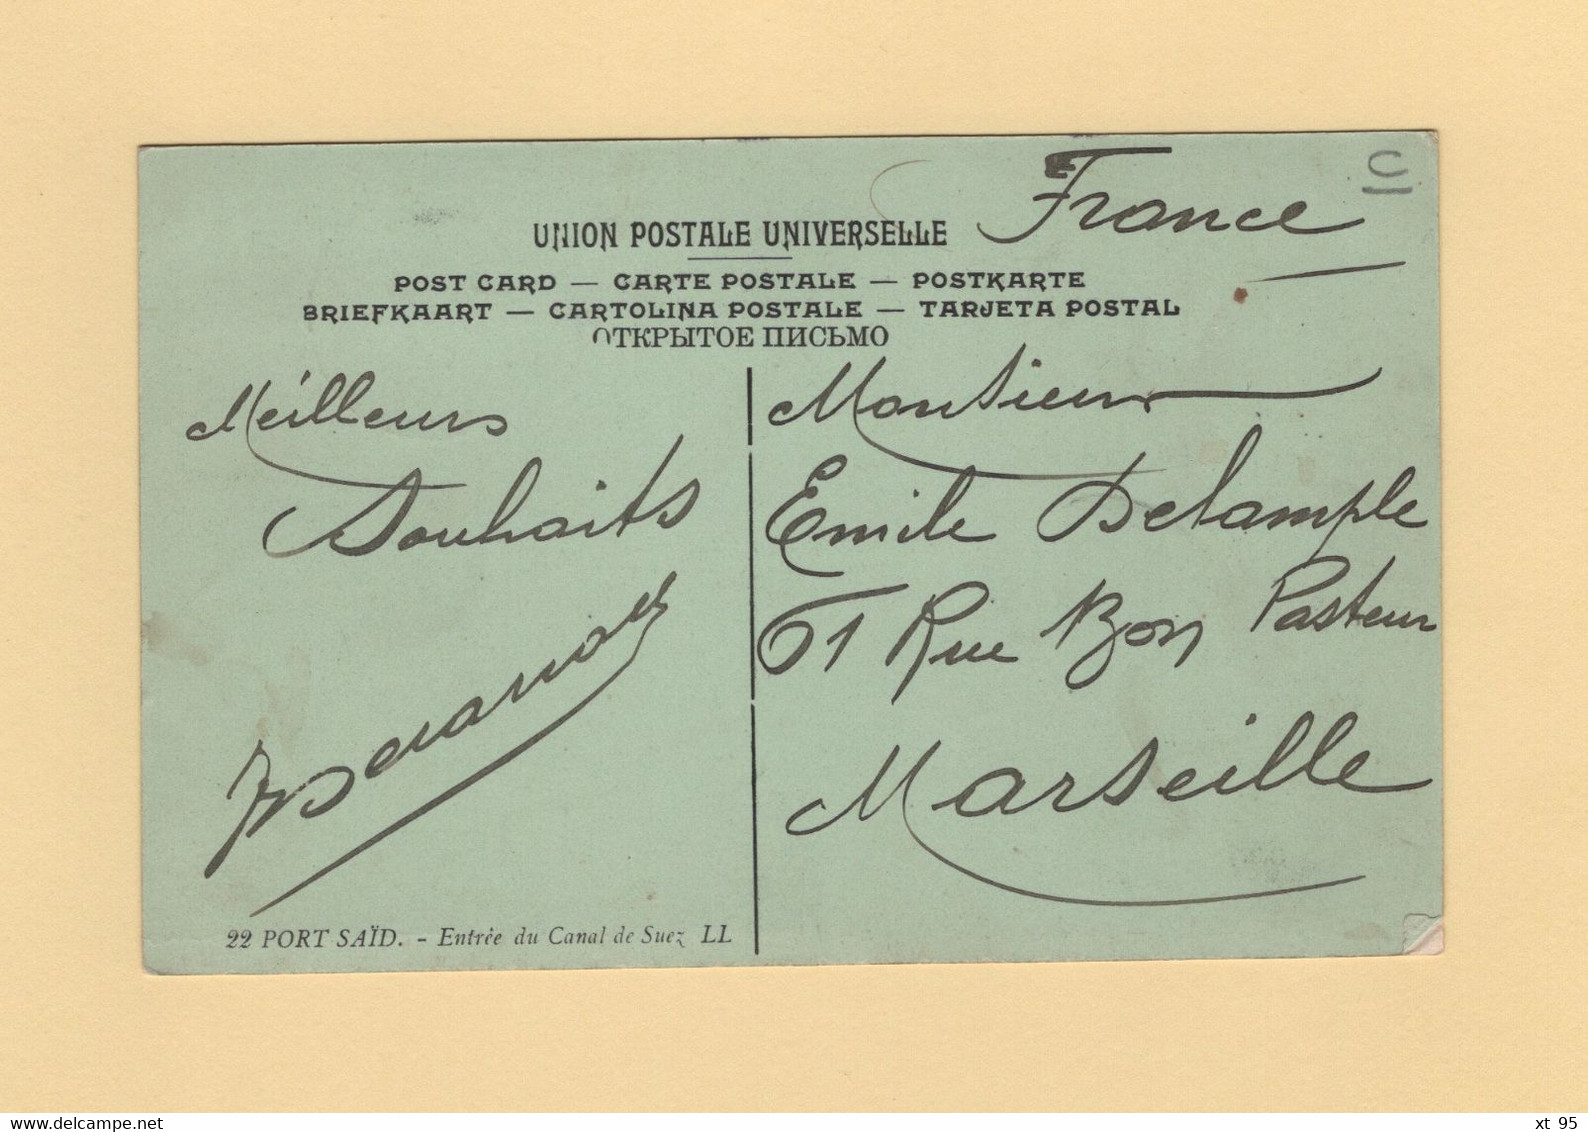 France
C
UNION POSTALE UNIVERSELLE
POST CARD — CARTE POSTALE — POSTKARTE
BRIEFKAART — CARTOLINA POSTALE — TARJETA POSTAL
ОТКРЫТОЕ ПИСЬМО
Meilleurs
Souhaits
Monsieur
Emile Delample
61 Rue Bon Pasteur
Marseille
22 PORT SAÏD. - Entrée du Canal de Suez LL
xt 95